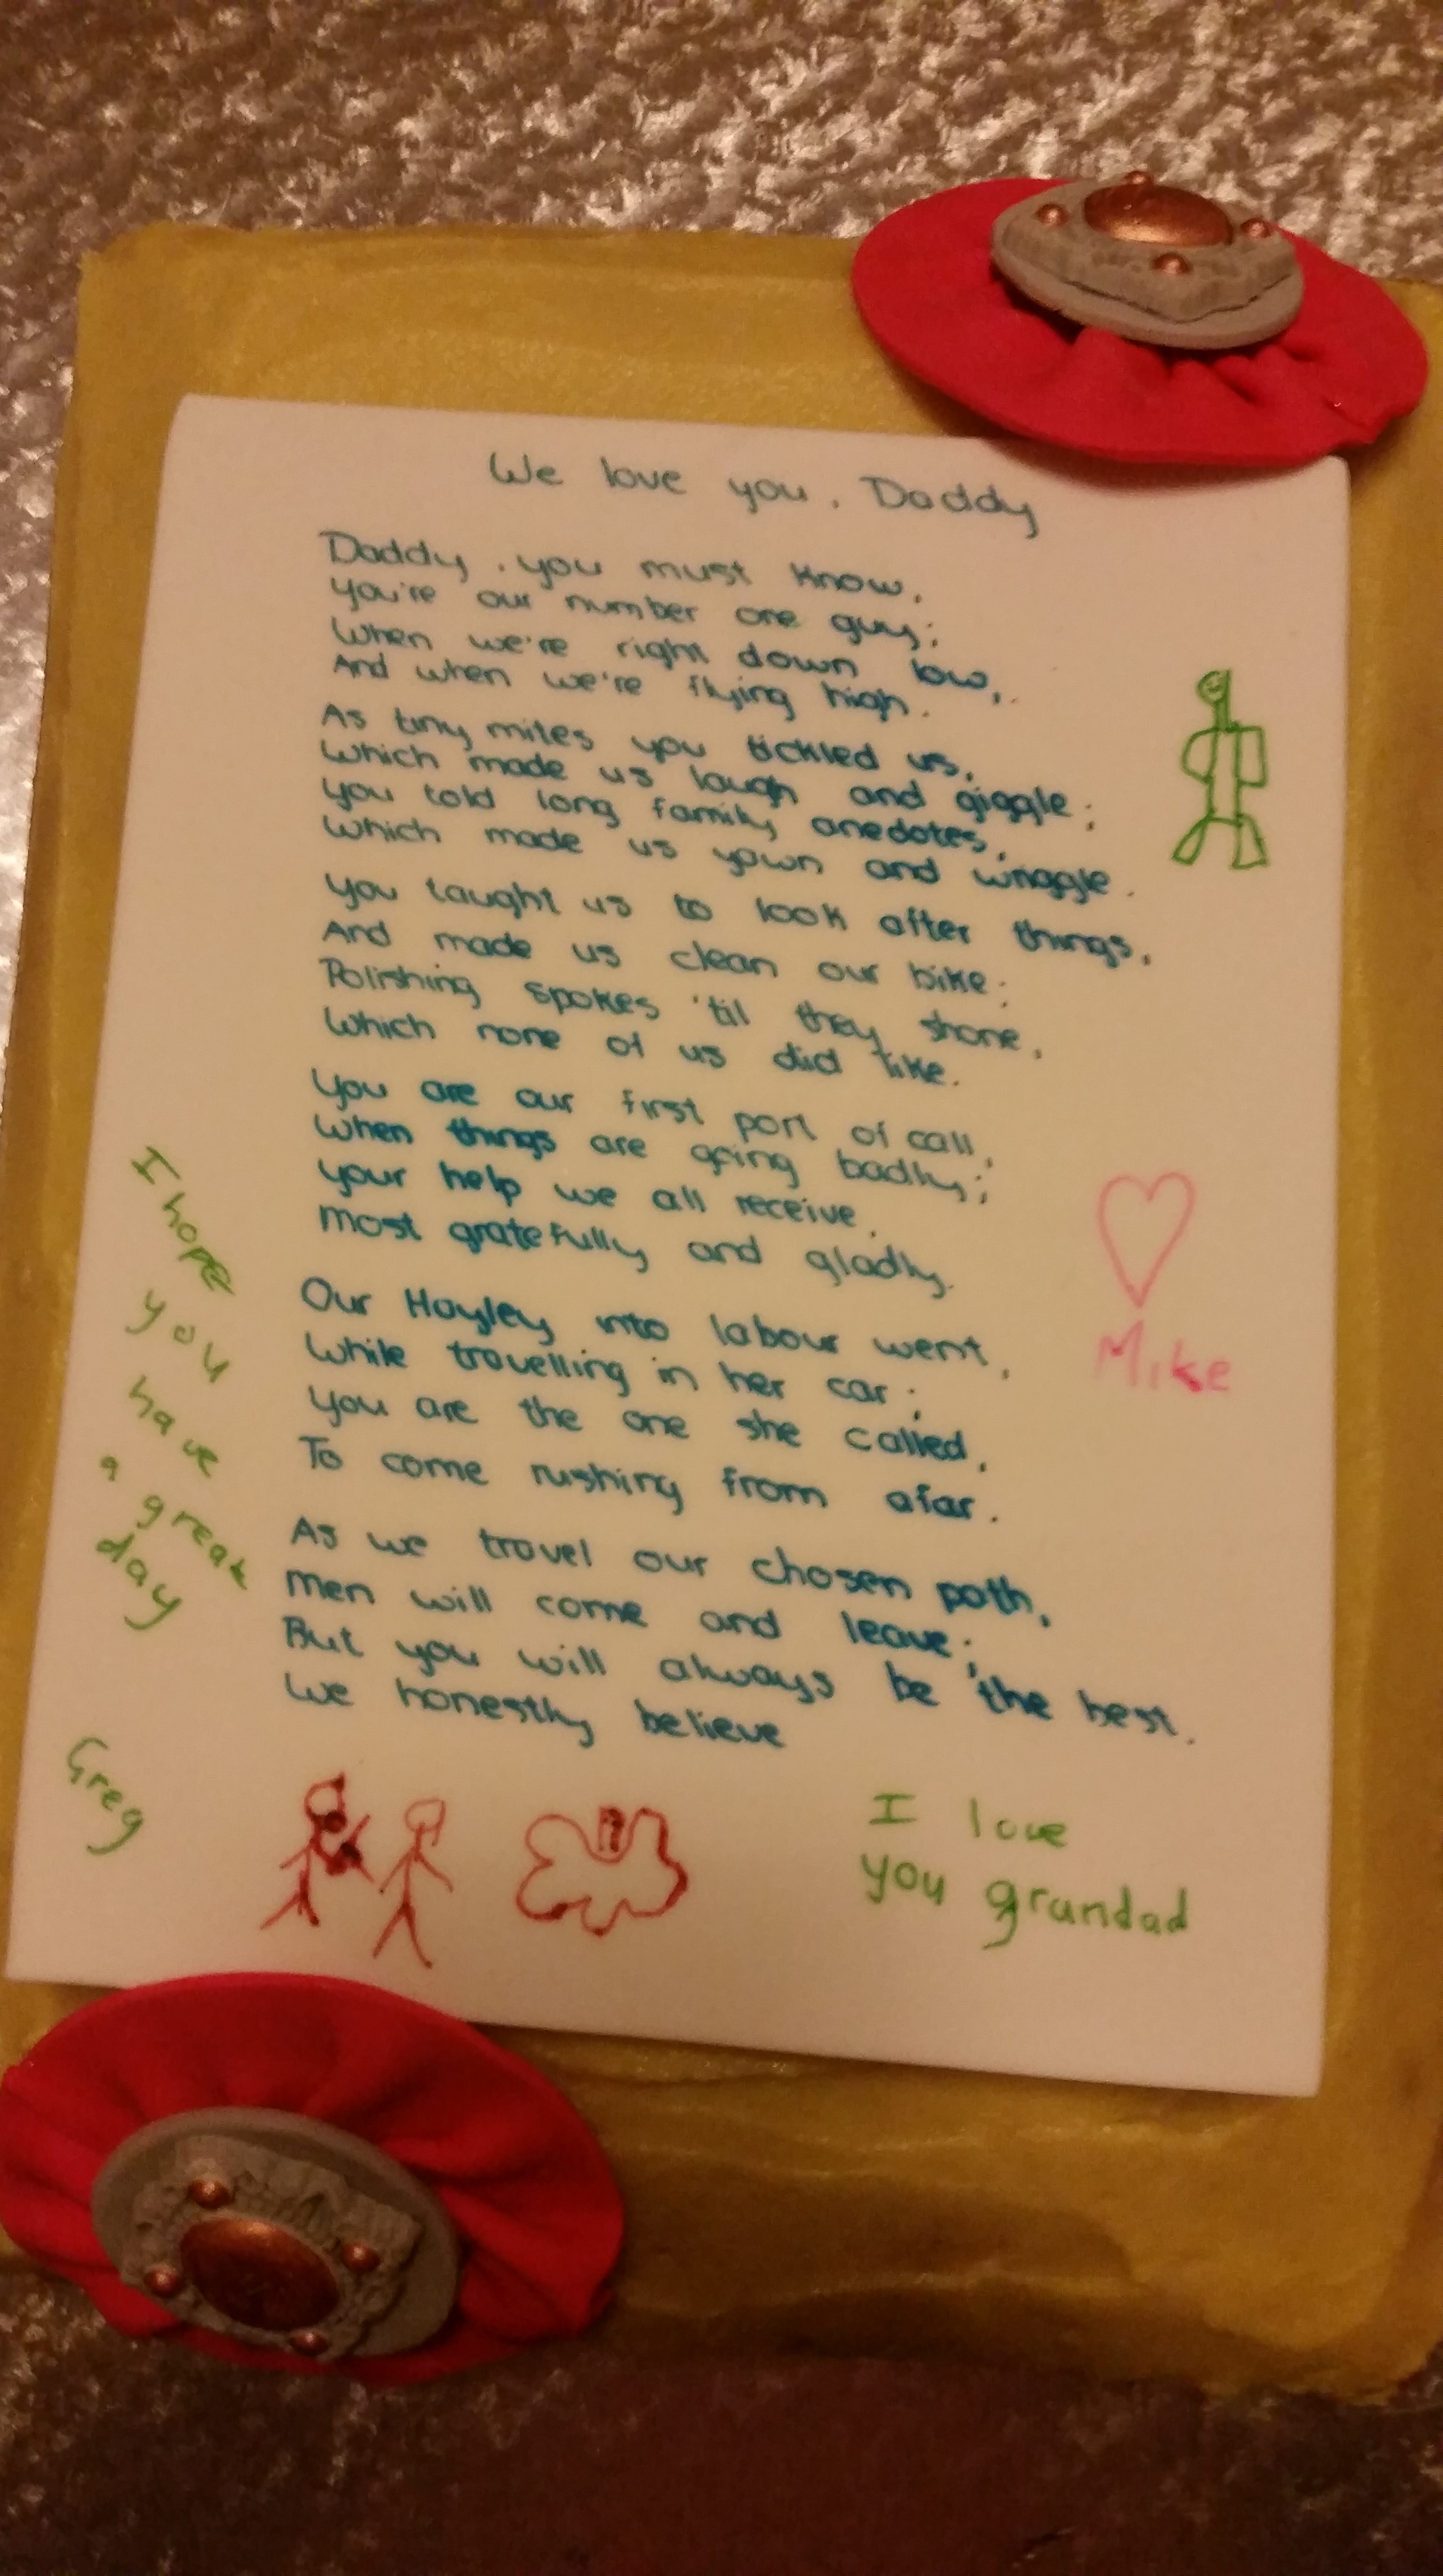 We love you, Daddy
Daddy, you must know,
You're our number one guy;
When we're right down low,
And when we're flying high.
As tiny mites you tickled us,
Which made us laugh and giggle;
You told long family anedotes,
Which made us yawn and wriggle.
You taught us to look after things,
And made us clean our bike;
Polishing spokes 'til they shone,
Which none of us did like.
You are our first port of call,
When things are going badly;
Your help we all receive,
Most gratefully and gladly.
Our Hayley into labour went,
While travelling in her car;
You are the one she called,
To come rushing from afar.
As we travel our chosen path,
Men will come and leave;
But you will always be the best,
We honestly believe
Mike
I hope
you
have
a great
day
Greg
I love
you grandad